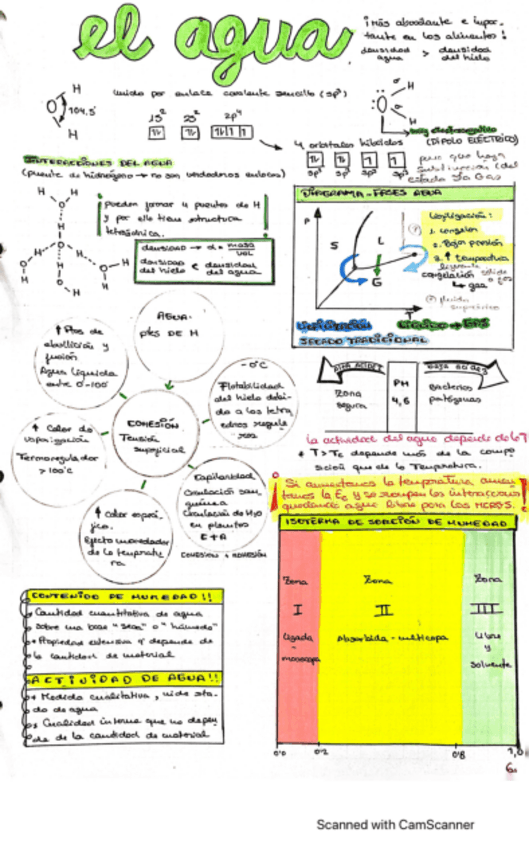 el agua
¡Más abundante e impor-
tante en los alimentos!
densidad agua > densidad del hielo
unido por enlace covalente sencillo (sp³)
H
O
104.5
H
1s² 2s² 2p⁴
4 orbitales híbridos
sp³ sp³ sp³ sp³
H
O
H
(DIPOLO ELÉCTRICO)
para que haya
sublimación (del
estado S a Gas
INTERACCIONES DEL AGUA
(puente de hidrógeno → no son verdaderos enlaces)
pueden formar 4 puentes de H
y por ello tienen estructura
tetraédrica.
densidad → d = masa/vol
densidad del hielo < densidad del agua
DIAGRAMA-FASES AGUA
P
S
L
G
T
Liofilización:
1. congelar
2. Bajar presión
3. ↑ temperatura
congelación sólido a gas
↳ gas
fluido
LIOFILIZACIÓN LÍQUIDO → GAS
SECADO TRADICIONAL
AGUA
ptes DE H
↑ Ptos de
ebullición y
fusión
Agua líquida
entre 0-100
- 0°C
Flotabilidad
del hielo debi-
do a los tetra
edros regula
res
COHESIÓN
Tensión
superficial
↑ Calor de
vaporización
Termorregulador
> 100°C
↑ Calor especí-
fico.
Efecto moderador
de la temperatu
ra
Capilaridad
Circulación san-
guínea
Circulación de H₂O
en plantas
C + A
COHESIÓN + ADHESIÓN
ALTA ACIDEZ
BAJA ACIDEZ
Zona
segura
PH
4,6
Bacterias
patógenas
La actividad del agua depende de la T
* T > Te depende más de la compo
sición que de la Temperatura.
Si aumentamos la temperatura aumen
tamos la Ec y se rompen las interacciones
quedando agua libre para los MERGS.
ISOTERMA DE SORCIÓN DE HUMEDAD
Zona
I
Ligada
-
monocapa
Zona
II
Absorbida - multicapa
Zona
III
Libre
y
solvente
0.0 0.2 0.8 1,0
CONTENIDO DE HUMEDAD!!
* Cantidad cuantitativa de agua
sobre una base "seca" o "húmeda"
* Propiedad extensiva q depende de
la cantidad de material
ACTIVIDAD DE AGUA!!
* Medida cualitativa, mide esta-
do de agua
* Cualidad interna que no depen
de de la cantidad de material
Scanned with CamScanner